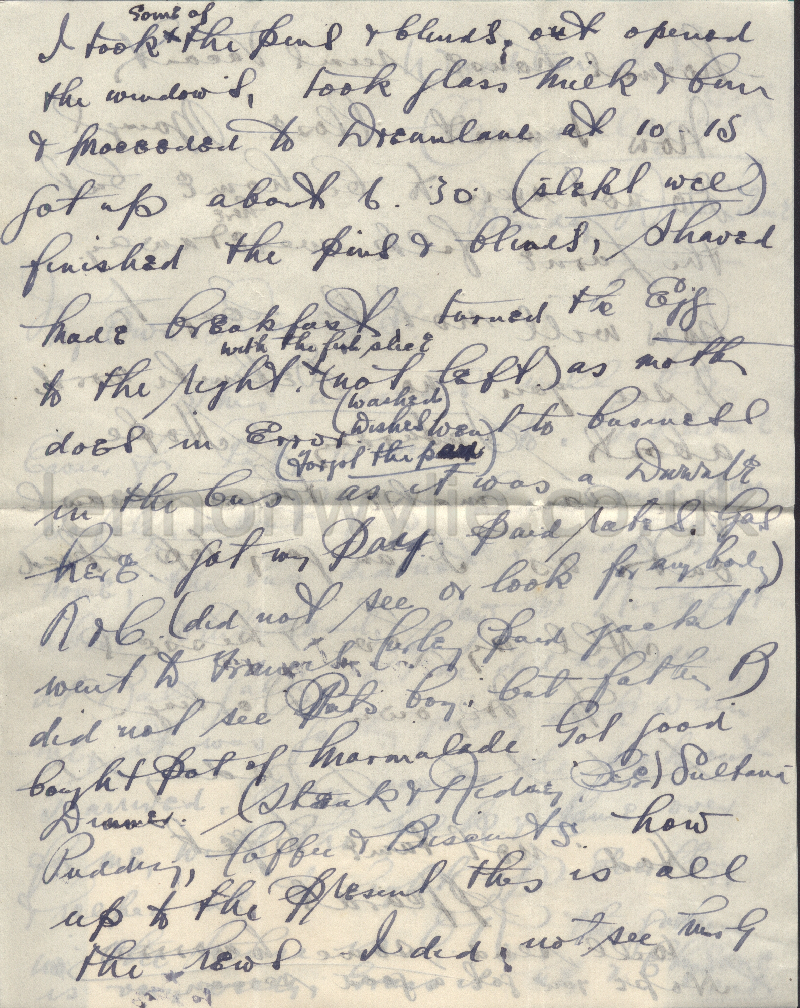 some of
I took the pins & blinds, out opened
the windows, took glass milk & bun
& proceeded to Dreamland at 10-15
got up about 6.30 (slept well)
finished the pins & blinds, Shaved
made breakfast, turned the Egg
with the fish slice
to the right. (not left) as mother
(washed
dishes)
does in Error went to business
(forgot the
in the bus as it was a
here. Got my Pay. Paid rates. Gas
R & C. (did not see or look for anybody)
went to paid jacket
did not see boy, but father
bought Pot of Marmalade Got good
Dinner. (Steak & Kidney Pie) Sultana
Pudding, Coffee & Biscuits. how
up to the present this is all
the news I did not see Mrs G
lemonwylie.co.uk